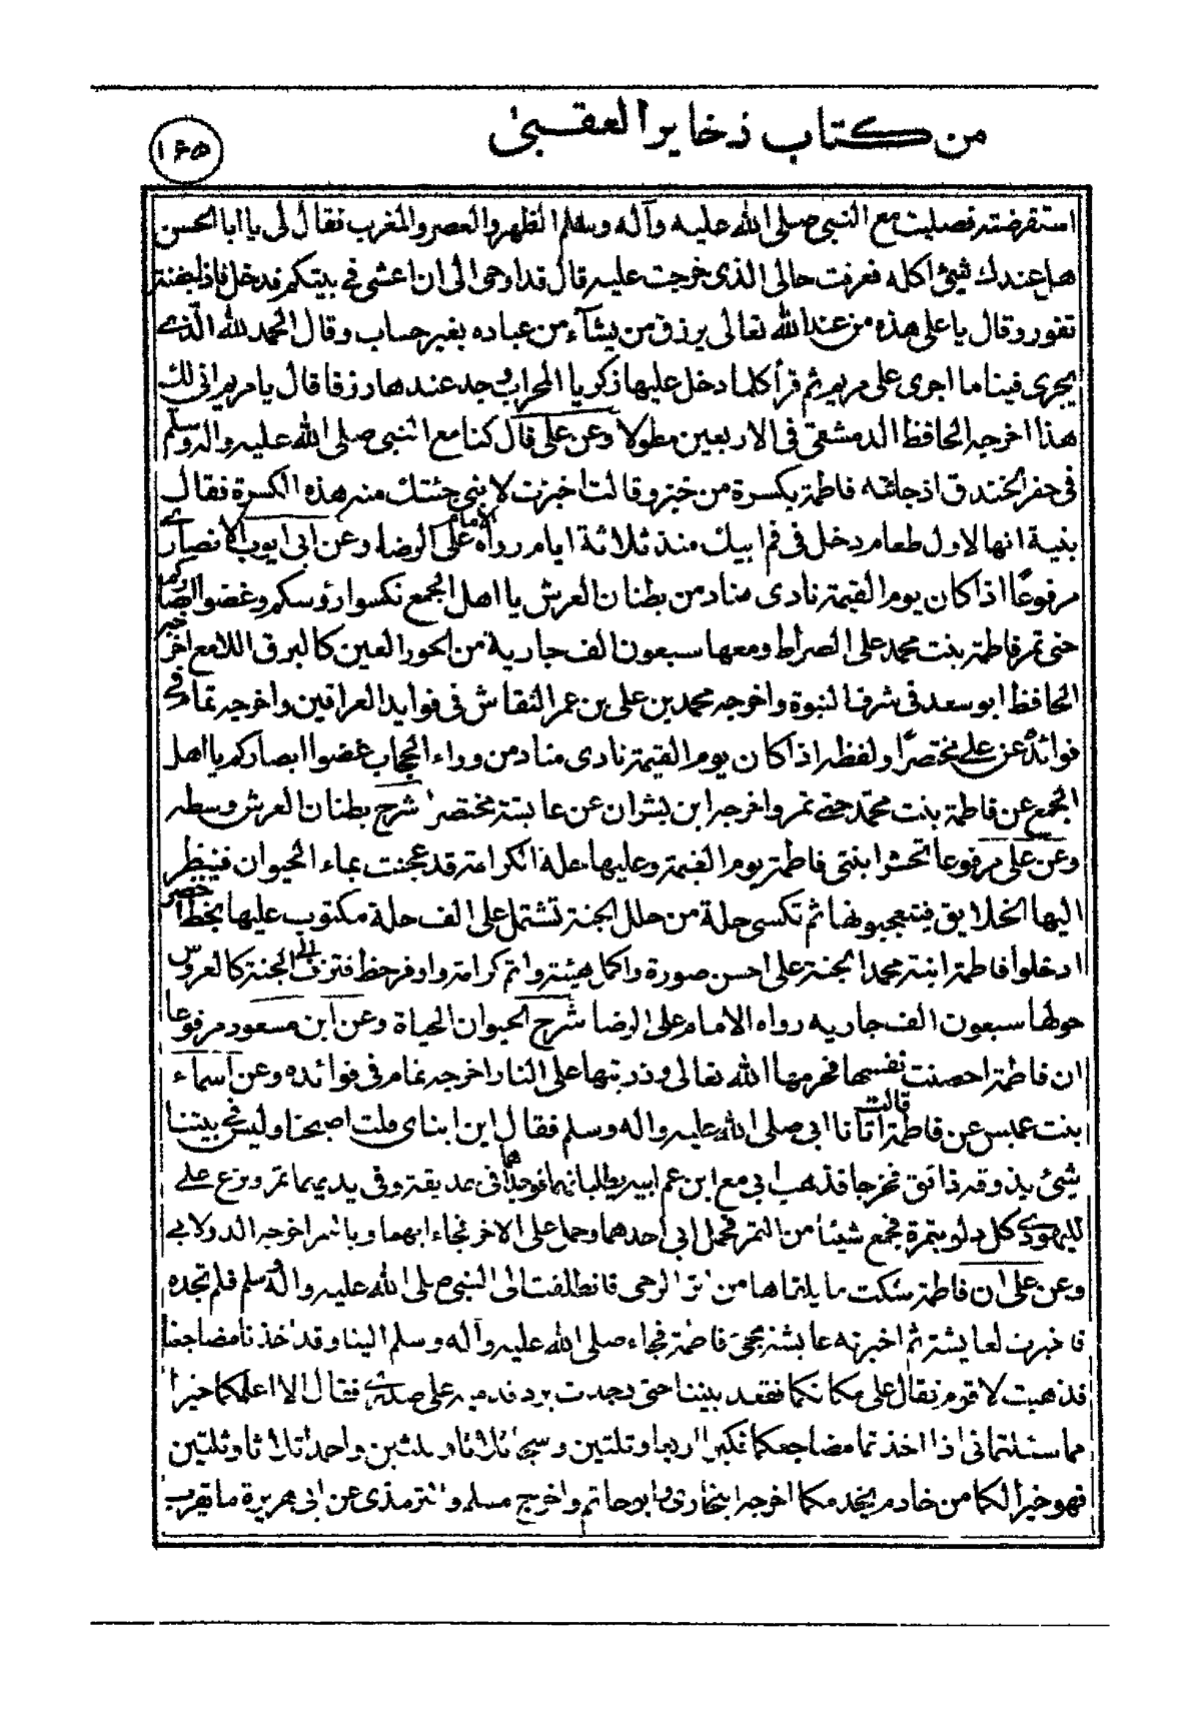 من كتاب ذخاير العقبى
١٦٥
استقرضته فصليت مع النبى صلى الله عليه وآله وسلم الظهر والعصر والمغرب فقال لى يا ابا الحسن
هل عندك شيئ اكله فعرفت حالى الذى خرجت عليه قال قد اوحى الى ان اعشى فى بيتكم فدخل فاذا بجفنة
تفور وقال يا على هذه من عند الله تعالى يرزق من يشآء من عباده بغير حساب وقال الحمد لله الذى
يجرى فينا ما اجرى على مريم ثم قرأ كلما دخل عليها ذكريا المحراب وجد عندها رزقا قال يا مريم انى لك
هذا اخرجه الحافظ الدمشقى فى الاربعين مطولا وعن على قال كنا مع النبى صلى الله عليه واله وسلم
فى حفر الخندق اذ جائته فاطمة بكسرة من خبز وقالت اخبزت لابنى جئتك منه هذه الكسرة فقال
بنية انها لاول طعام دخل فى فم ابيك منذ ثلاثة ايام رواه الامام على الرضا وعن ابى ايوب الانصارى
مرفوعًا اذا كان يوم القيمة نادى مناد من بطنان العرش يا اهل الجمع نكسوا رؤسكم وغضوا ابصاركم
حتى تمر فاطمة بنت محمد على الصراط ومعها سبعون الف جارية من الحور العين كالبرق اللامع اخرجه
الحافظ ابو سعد فى شرف النبوة واخرجه محمد بن على بن عمر النقاش فى فوايد العراقين واخرجه تمام فى
فوائده عن على مختصرًا ولفظه اذا كان يوم القيمة نادى مناد من وراء الحجاب غضوا ابصاركم يا اهل
الجمع عن فاطمة بنت محمّد حتى تمر واخرجه ابن بشران عن عايشة مختصرا شرح بطنان العرش وسطه
وعن على مرفوعا تحشر ابنتى فاطمة يوم القيمة وعليها حلة الكرامة قد عجنت بماء الحيوان فينظر
اليها الخلايق فيتعجبو نها ثم تكسى حلة من حلل الجنة تشتمل على الف حلة مكتوب عليها بخط اخضر
ادخلوا فاطمة ابنة محمد الجنة على احسن صورة واكمل هيئة واتم كرامة واوفر حظ فتزف الى الجنة كالعروس
حولها سبعون الف جاريه رواه الامام على الرضا شرح الحيوان الحياة وعن ابن مسعود مرفوعا
ان فاطمة احصنت نفسها فحرمها الله تعالى وذريتها على النار اخرجه تمام فى فوائده وعن اسماء
بنت عميس عن فاطمة قالت اتانا ابى صلى الله عليه واله وسلم فقال اين ابناى قلت اصبحنا وليس فى بيتنا
شيئ يذوقه ذائق فخرجا فذهب ابى مع ابن عم ابيه يطلبانهما فوجداهما فى حديقة وفى يديهما تمر ونزع على
لليهودى كل دلو بتمرة فجمع شيئا من التمر فحمل ابى احدهما وحمل على الاخر فجاء ابهما وبالتمر اخرجه الدولابى
وعن على ان فاطمة شكت ما يلتماها من اثر الرحى فانطلقت الى النبى صلى الله عليه واله وسلم فلم تجده
فاخبرت لعايشة ثم اخبرته عايشة بمجئ فاطمة فجاء صلى الله عليه وآله وسلم الينا وقد اخذنا مضاجعنا
فذهبت لاقوم فقال على مكانكما فقعد بيننا حتى وجدت برد قدميه على صدرى فقال الا اعلمكما خيرا
مما سئلتمانى اذا اخذتما مضاجعكما فكبرا اربعا وثلثين وسبحا ثلاثا وثلثين واحمدا ثلاثا وثلثين
فهو خير لكما من خادم يخدمكما اخرجه البخارى وابو حاتم واخرج مسلم والترمذى عن ابى هريرة ما يقرب